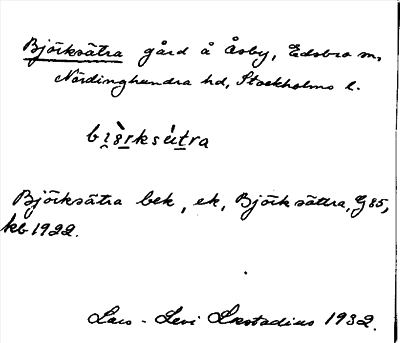 Björksätra gård å Åsby, Edsbro sn,
Närdinghundra hd, Stockholms l.
Björksätra bek, ek, Björksättra, G85,
kb 1922.
Lars-Levi Læstadius 1932.